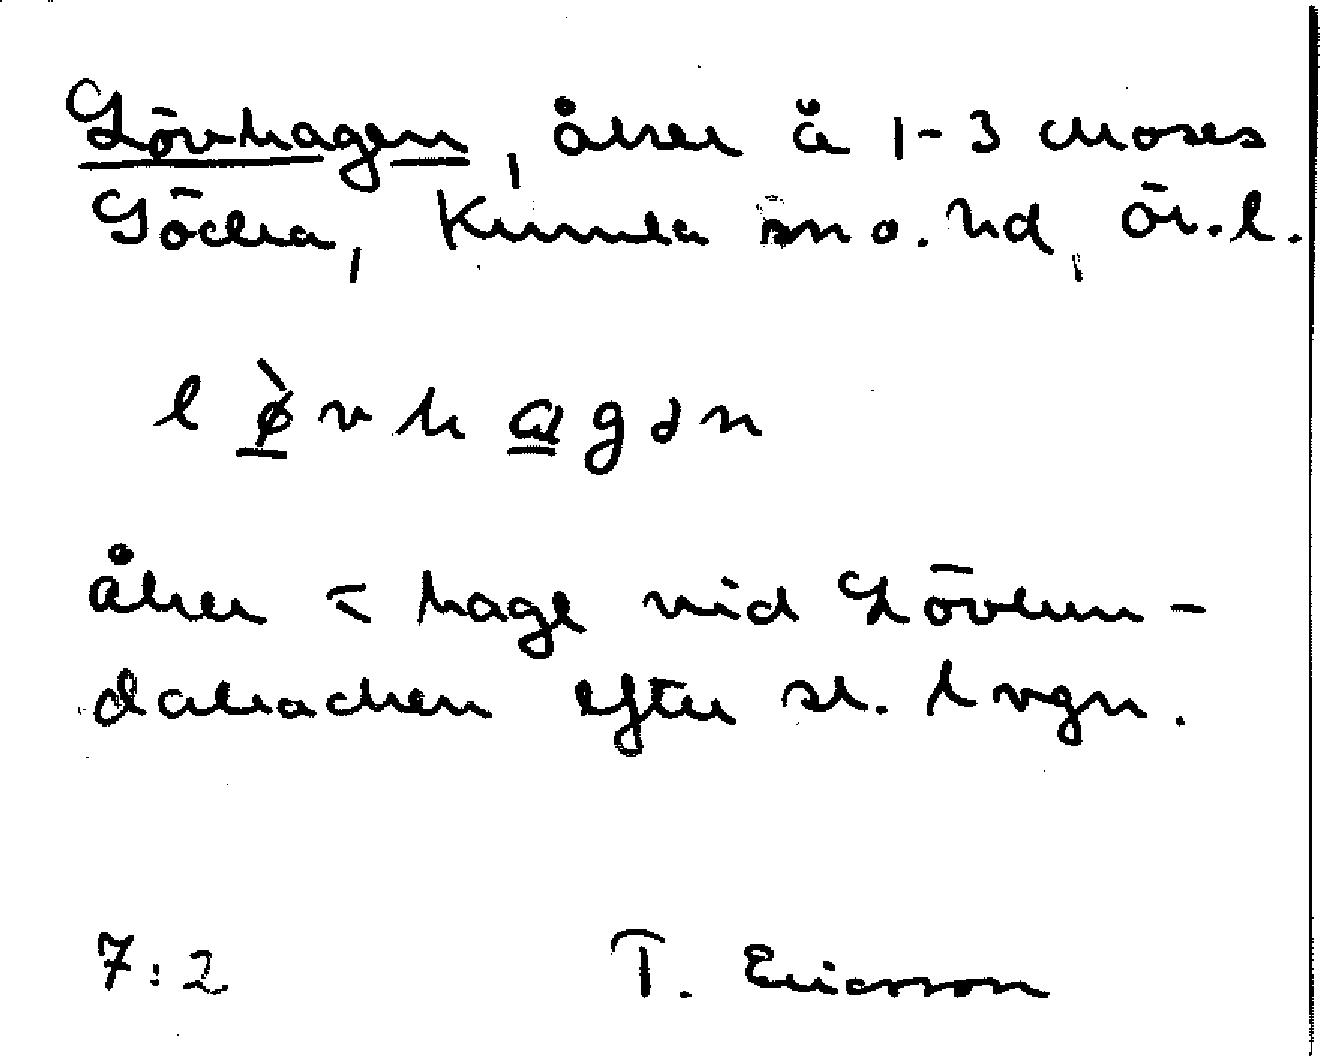 Lövhagen, åker å 1-3 Mosås
Södra, Kumla sn o. hd, Ör. l.
l ø̀ v h ɑ g ə n
åker < hage vid Lövlun-
dabacken efter sk. lvgn.
7:2 T. Ericsson